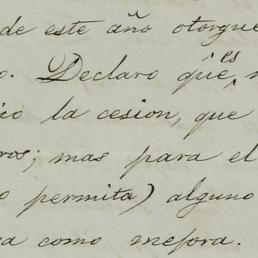 de este año otorgué
o. Declaro que es
icó la cesion, que
ros; mas para el
o permita) alguno
a como mejora.